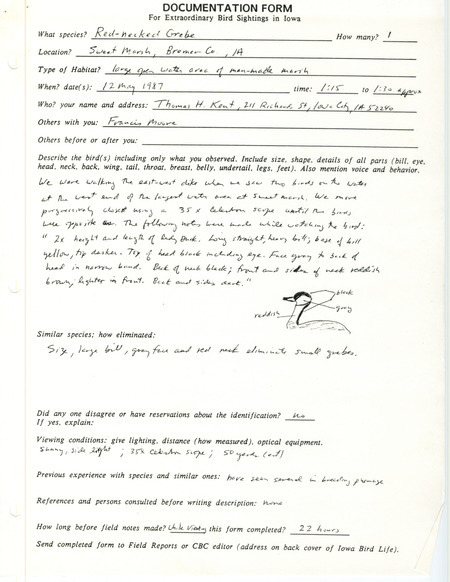 DOCUMENTATION FORM
For Extraordinary Bird Sightings in Iowa
What species? Red-necked Grebe How many? 1
Location? Sweet Marsh, Bremer Co, IA
Type of Habitat? large open water area of man-made marsh
When? date(s): 12 May 1987 time: 1:15 to 1:30 approx
Who? your name and address: Thomas H. Kent, 211 Richards St, Iowa City, IA 52240
Others with you: Francis Moore
Others before or after you:
Describe the bird(s) including only what you observed. Include size, shape, details of all parts (bill, eye,
head, neck, back, wing, tail, throat, breast, belly, undertail, legs, feet). Also mention voice and behavior.
We were walking the east-west dike when we saw two birds on the water
at the west end of the largest water area at Sweet Marsh. We move
progressively closer using a 35x Celestron scope until the birds
were opposite us. The following notes were made while watching the bird:
" 2x height and length of Ruddy Duck. Long straight, heavy bill; base of bill
yellow, tip darker. Top of head black including eye. Face gray to back of
head in narrow band. Back of neck black; front and sides of neck reddish
brown, lighter in front. Back and sides dark. "
black
gray
reddish
Similar species; how eliminated:
Size, large bill, gray face and red neck eliminate small grebes.
Did any one disagree or have reservations about the identification? no
If yes, explain:
Viewing conditions: give lighting, distance (how measured), optical equipment.
Sunny, side light ; 35x Celestron scope ; 50 yards (est)
Previous experience with species and similar ones: have seen several in breeding plumage
References and persons consulted before writing description: none
How long before field notes made? While Viewing this form completed? 22 hours
Send completed form to Field Reports or CBC editor (address on back cover of Iowa Bird Life).